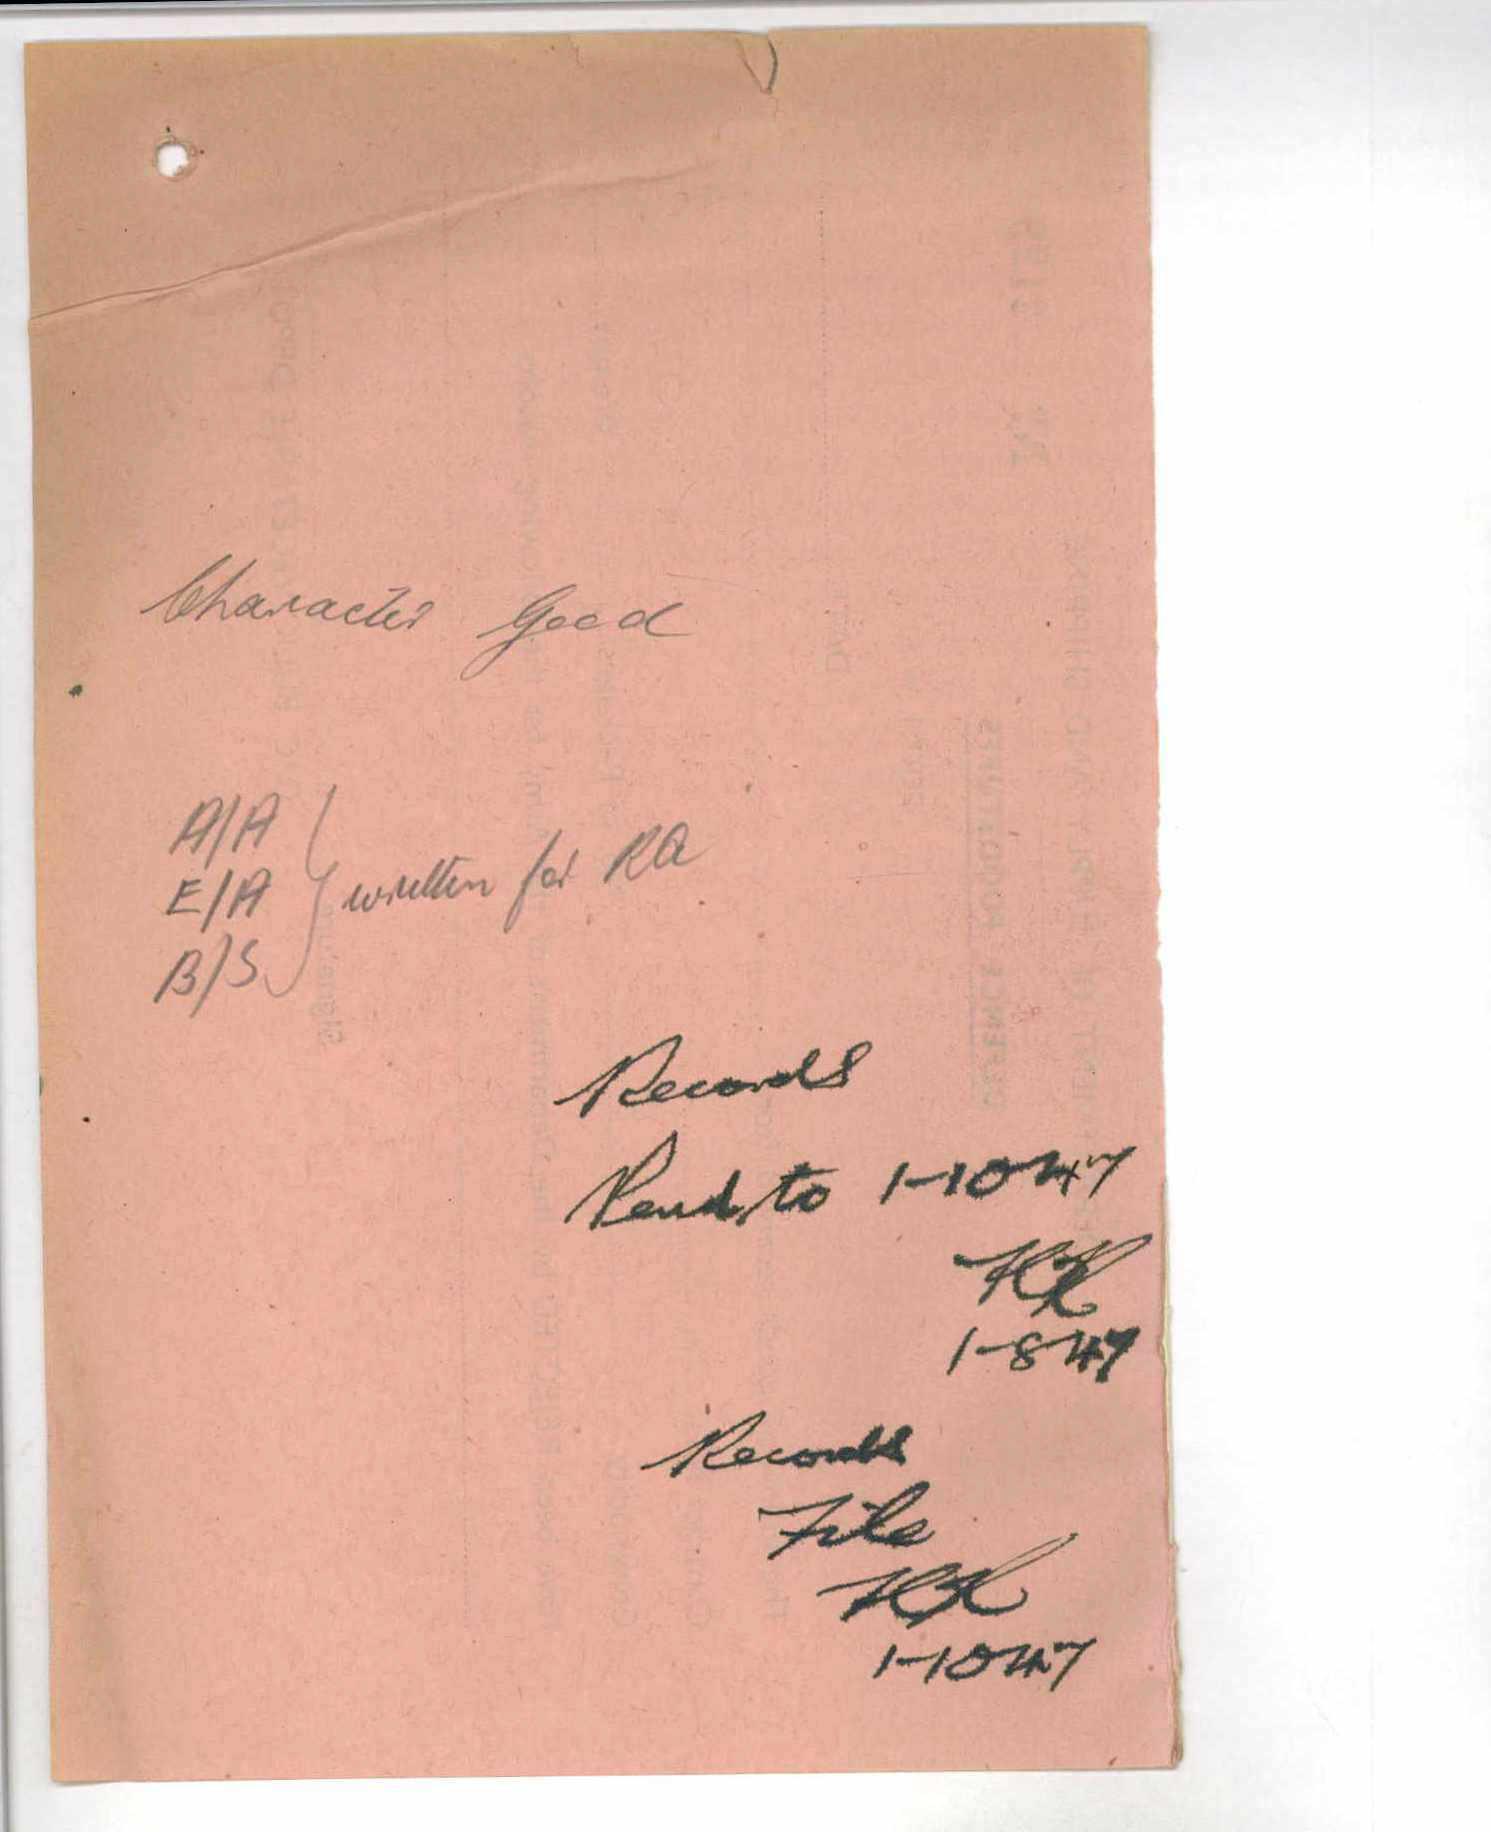 Character Good
A/A
E/A written for RA
B/S
Records
Pend to 1-10-47
1-8-47
Records
File
1-10-47